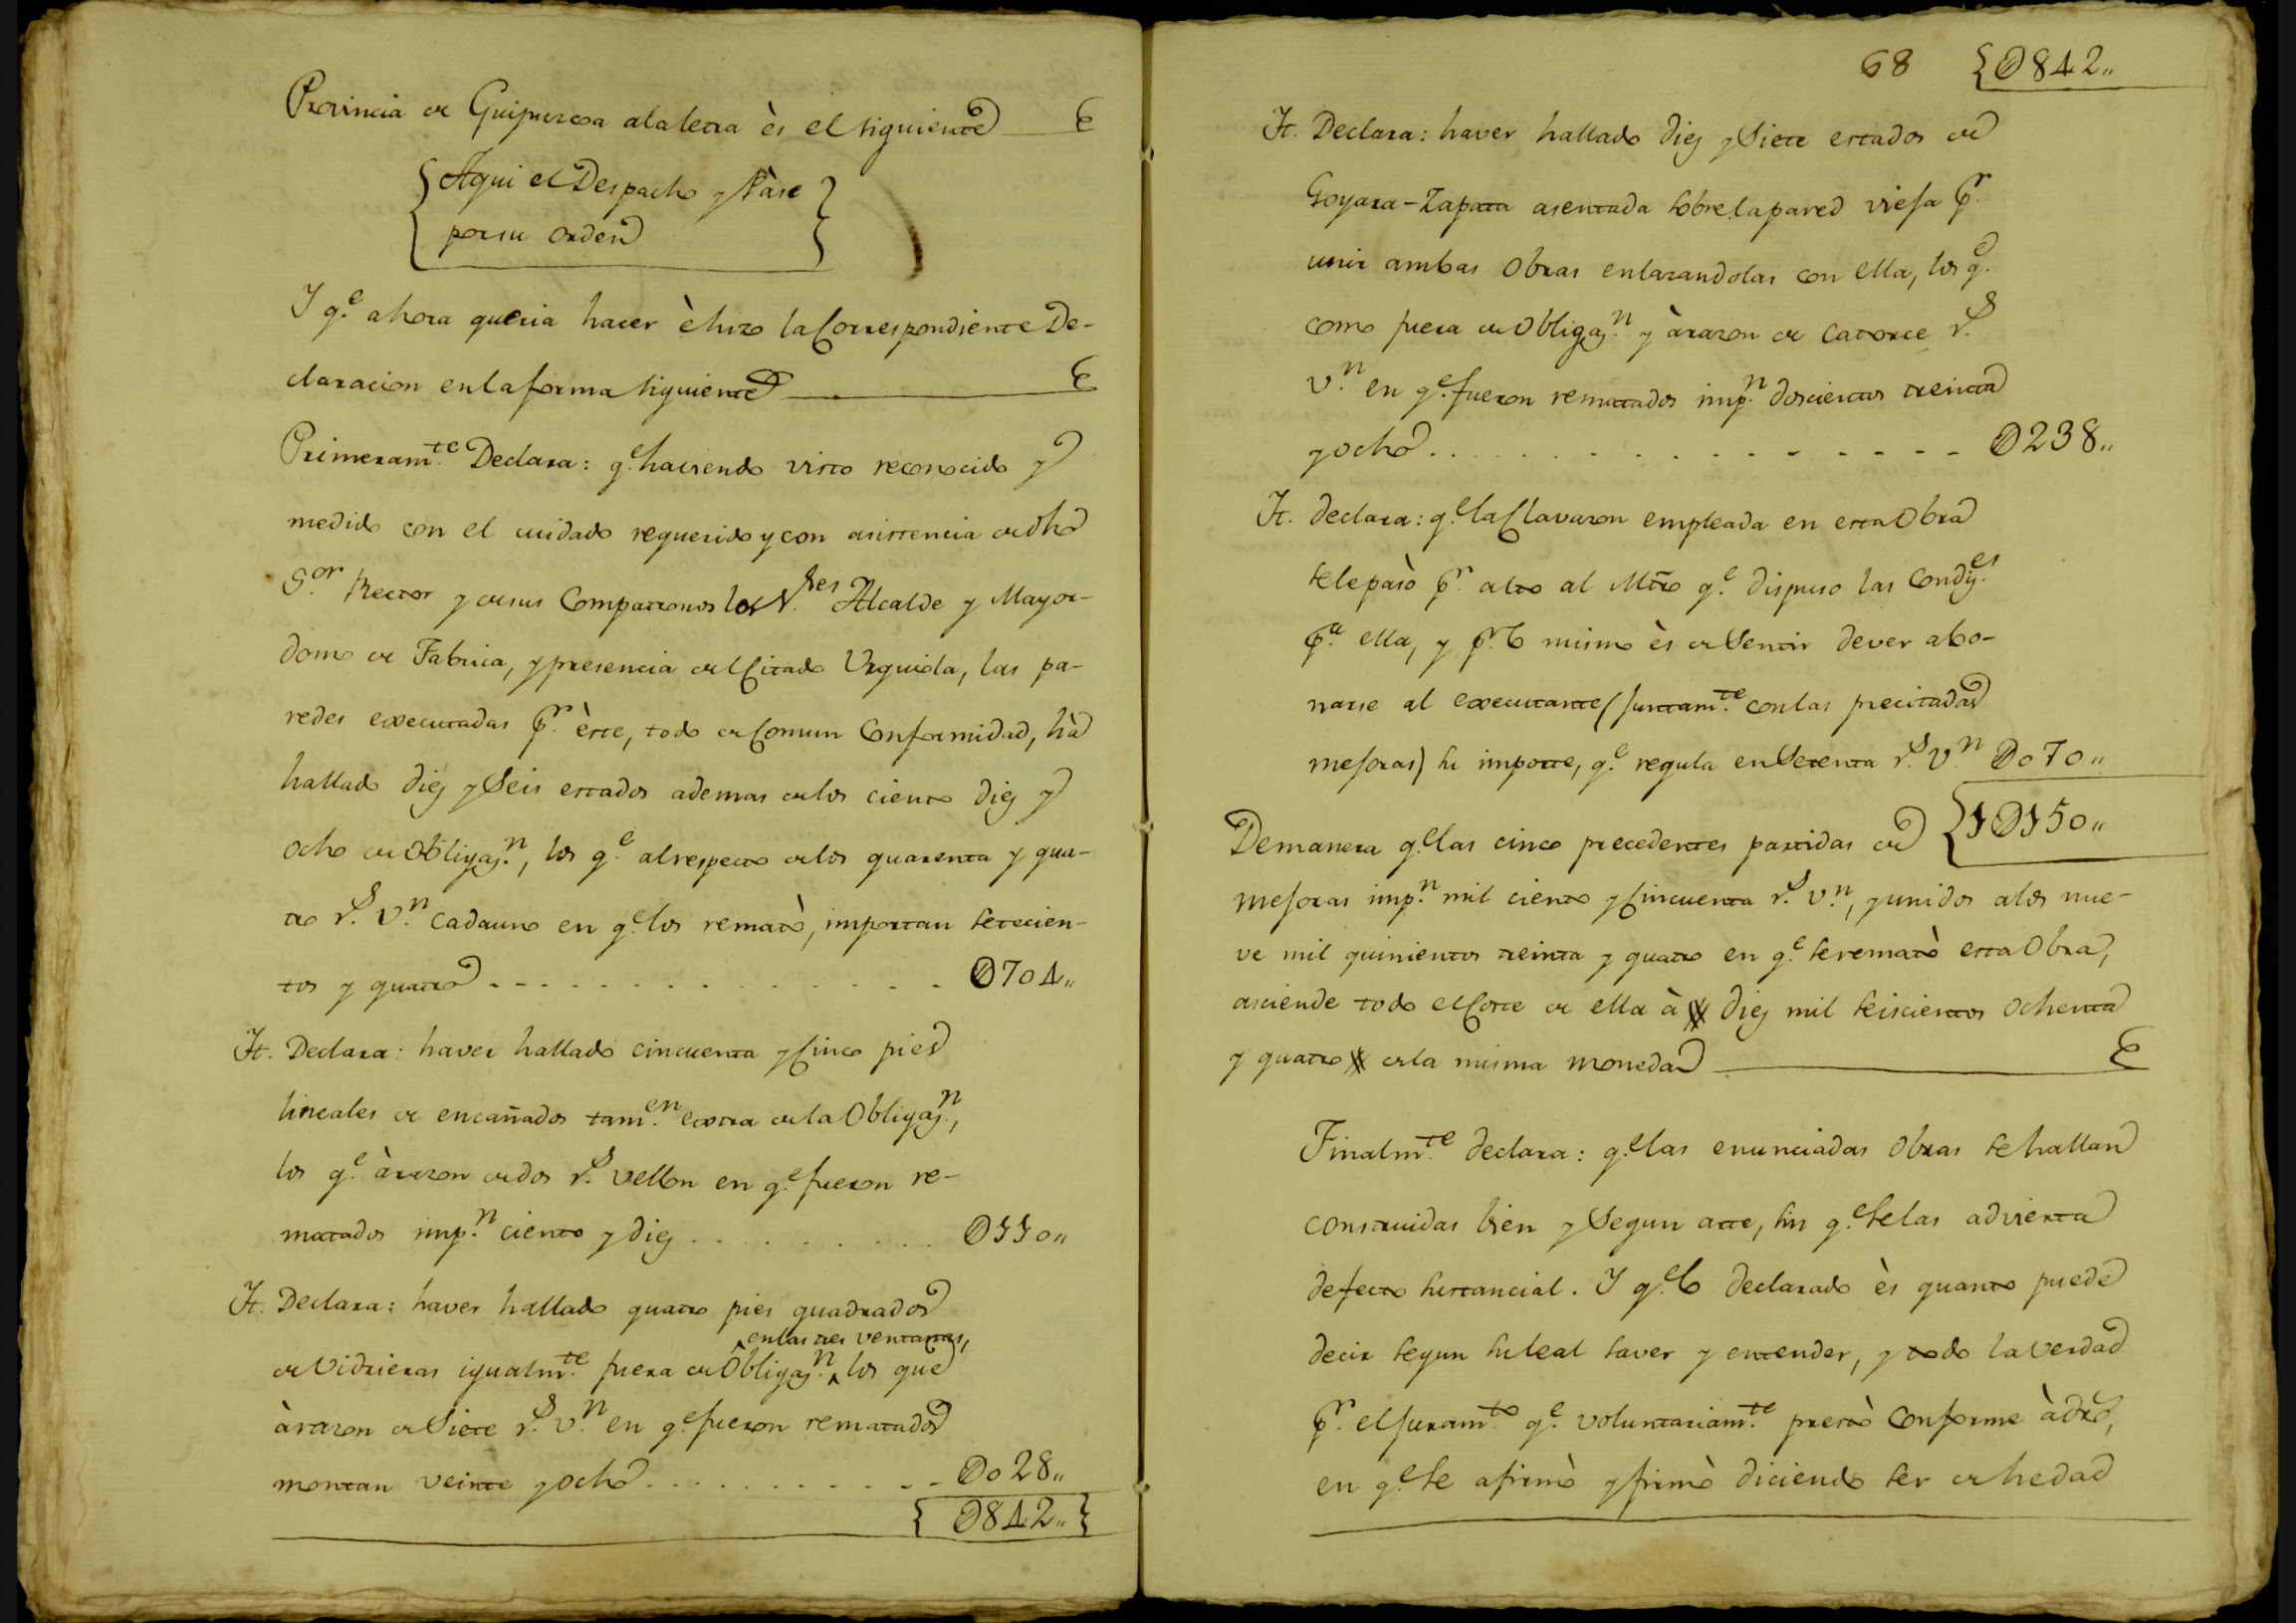 Provincia de Guipuzcoa ala letra ès el siguiente
Aqui el Despacho y Pàse
por su orden
I q.e ahora queria hacer è hizo la Correspondiente De-
claracion en la forma siguiente
Primeram.te Declara: q.e haviendo visto reconocido y
medido con el cuidado requerido y con asistencia de dho
S.or Rector y de sus Compatronos los S.res Alcalde y Mayor-
domo de Fabrica, y presencia del Citado Urquiola, las pa-
redes executadas p.r èste, todo de Comun Conformidad, hà
hallado diez y Seis estados ademas de los ciento diez y
ocho de Obligaz.n, los q.e al respecto de los quarenta y qua-
tro r.s v.n cada uno en q.e los remató, importan setecien-
tos y quatro . . . . . . . . . . . . . . . Ø704,,
It. Declara: haver hallado cincuenta y Cinco pies
lineales de encañados tam.en extra de la Obligaz.n,
los q.e à razon de dos r.s vellon en q.e fueron re-
matados imp.n ciento y diez . . . . . . . . . . Ø110,,
It. Declara: haver hallado quatro pies quadrados
en las tres ventanas,
de Vidrieras igualm.te fuera de Obligaz.n los que
à razon de Siete r.s v.n en q.e fueron rematados
montan veinte y ocho . . . . . . . . . . . . Ø028,,
Ø842,,
68 Ø842,,
It. Declara: haver hallado diez y Siete estados de
Goyara-Zapata asentada sobre la pared vieja p.r
unir ambas Obras enlazandolas con ella, los q.e
como fuera de Obligaz.n y à razon de catorce r.s
v.n en q.e fueron rematados imp.n doscientos treinta
y ocho . . . . . . . . . . . . . Ø238,,
It. declara: q.e la Clavazon empleada en esta Obra
se le pasò p.r alto al Mtro q.e dispuso las Condiz.es
p.a ella, y p.r lo mismo ès de Sentir dever abo-
narse al executante (juntam.te con las precitadas
mejoras) su importe, q.e regula en Setenta r.s v.n Ø070,,
1Ø150,,
Demanera q.e las cinco precedentes partidas de
mejoras imp.n mil ciento y Cincuenta r.s v.n, y unidos a los nue-
ve mil quinientos treinta y quatro en q.e se remató esta Obra,
asciende todo el Coste de ella à diez mil seiscientos ochenta
y quatro de la misma moneda
Finalm.te declara: q.e las enunciadas Obras se hallan
construidas bien y Segun arte, sin q.e se las advierta
defecto sustancial. I q.e lo declarado ès quanto puede
decir segun su leal saver y entender, y todo la verdad
p.r el juram.to q.e voluntariam.te prestò Conforme à dro,
en q.e se afirmò y firmò diciendo ser de hedad